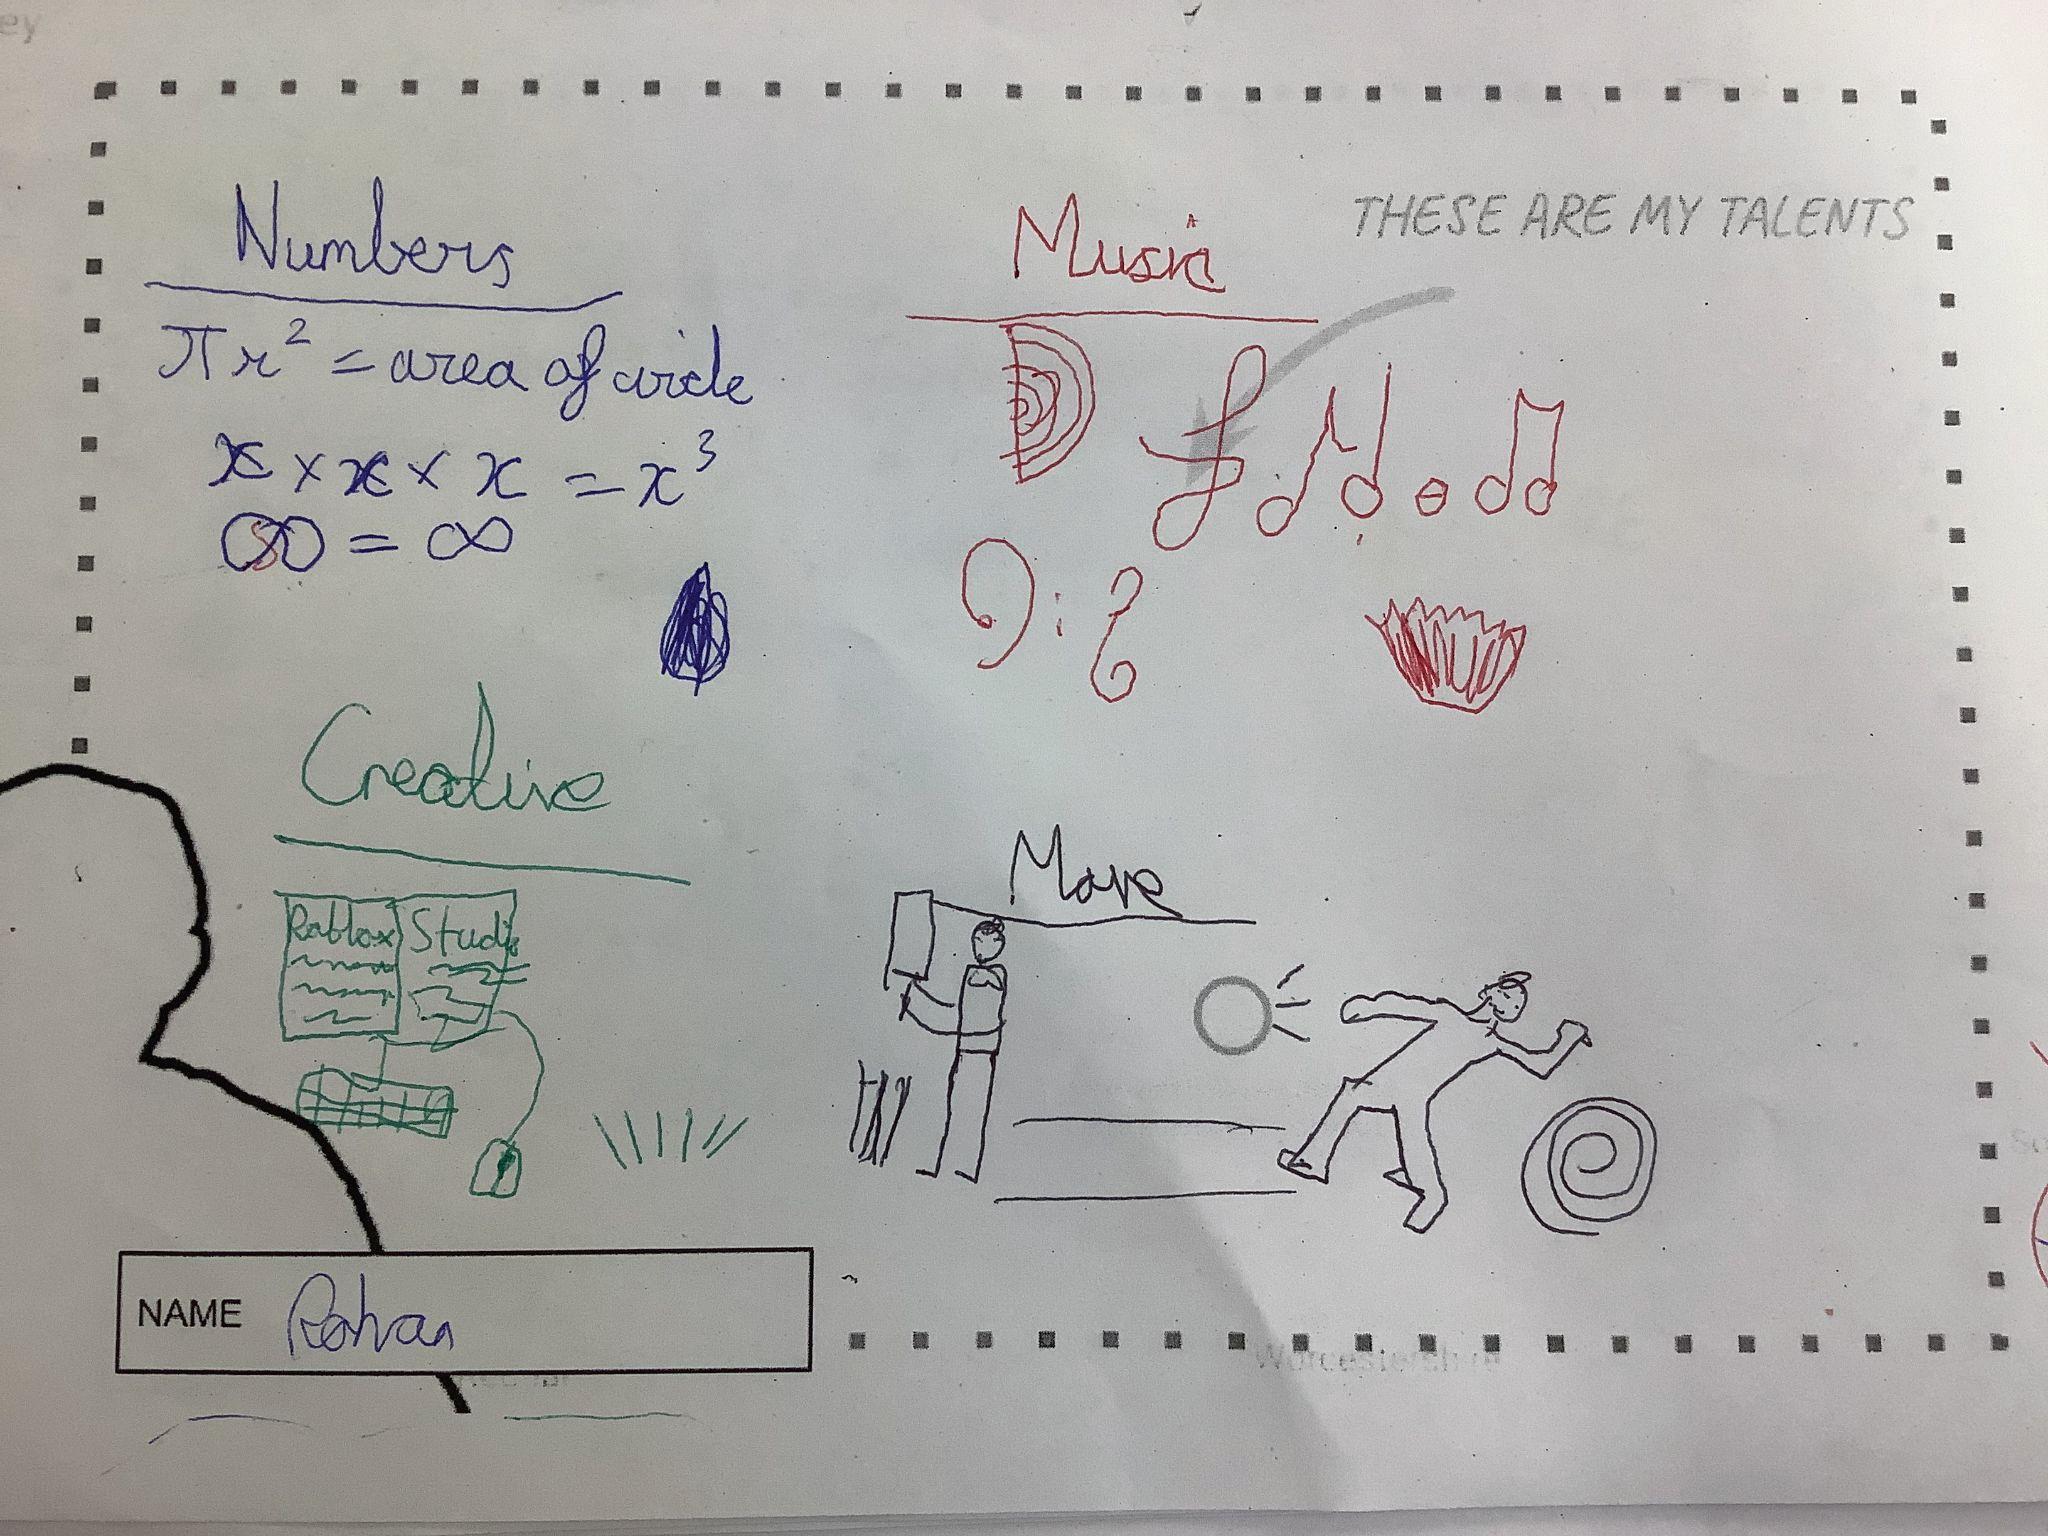 THESE ARE MY TALENTS
Numbers
πr² = area of circle
x × x × x = x³
∞ = ∞
Music
Creative
Roblox Studio
Move
NAME Rohan